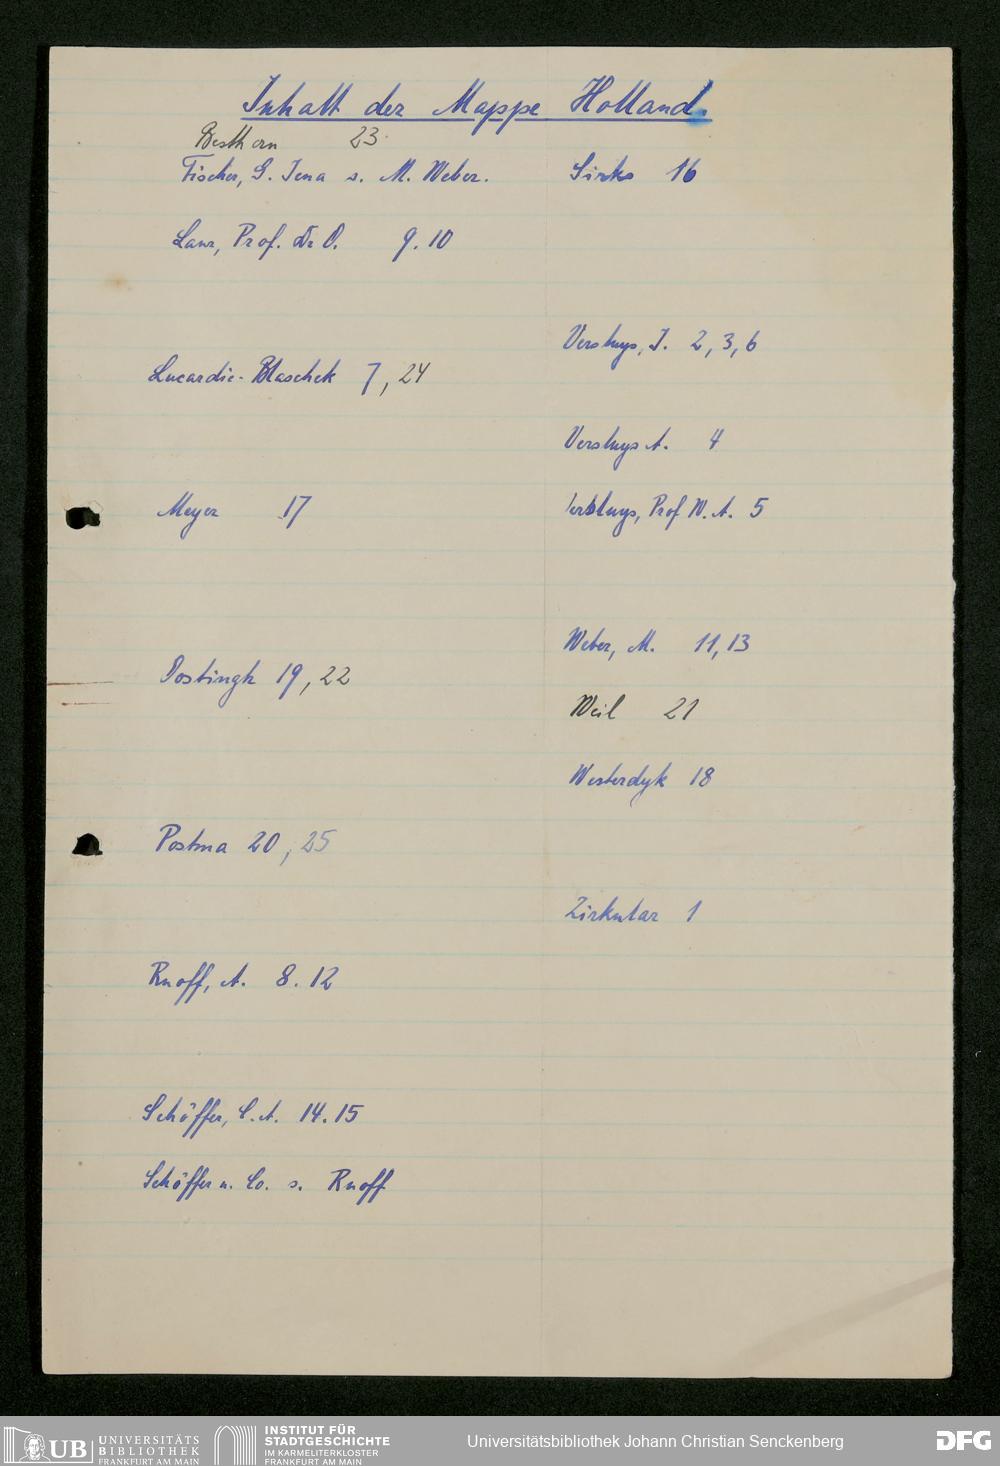 Inhalt der Mappe Holland.
Besthorn 23
Fischer, G. Jena s. M. Weber.
Lanz, Prof. Dr O. 9. 10
Lucardie-Blaschek 7, 24
Meyer 17
Postingh 19, 22
Postma 20, 25
Ruoff, A. 8. 12
Schöffer, C. A. 14. 15
Schöffer u. Co. s. Ruoff
Sirks 16
Versluys, J. 2, 3, 6
Versluys A. 4
Versluys, Prof W. A. 5
Weber, M. 11, 13
Weil 21
Westerdyk 18
Zirkular 1
UB UNIVERSITÄTS
BIBLIOTHEK
FRANKFURT AM MAIN
INSTITUT FÜR
STADTGESCHICHTE
IM KARMELITERKLOSTER
FRANKFURT AM MAIN
Universitätsbibliothek Johann Christian Senckenberg
DFG